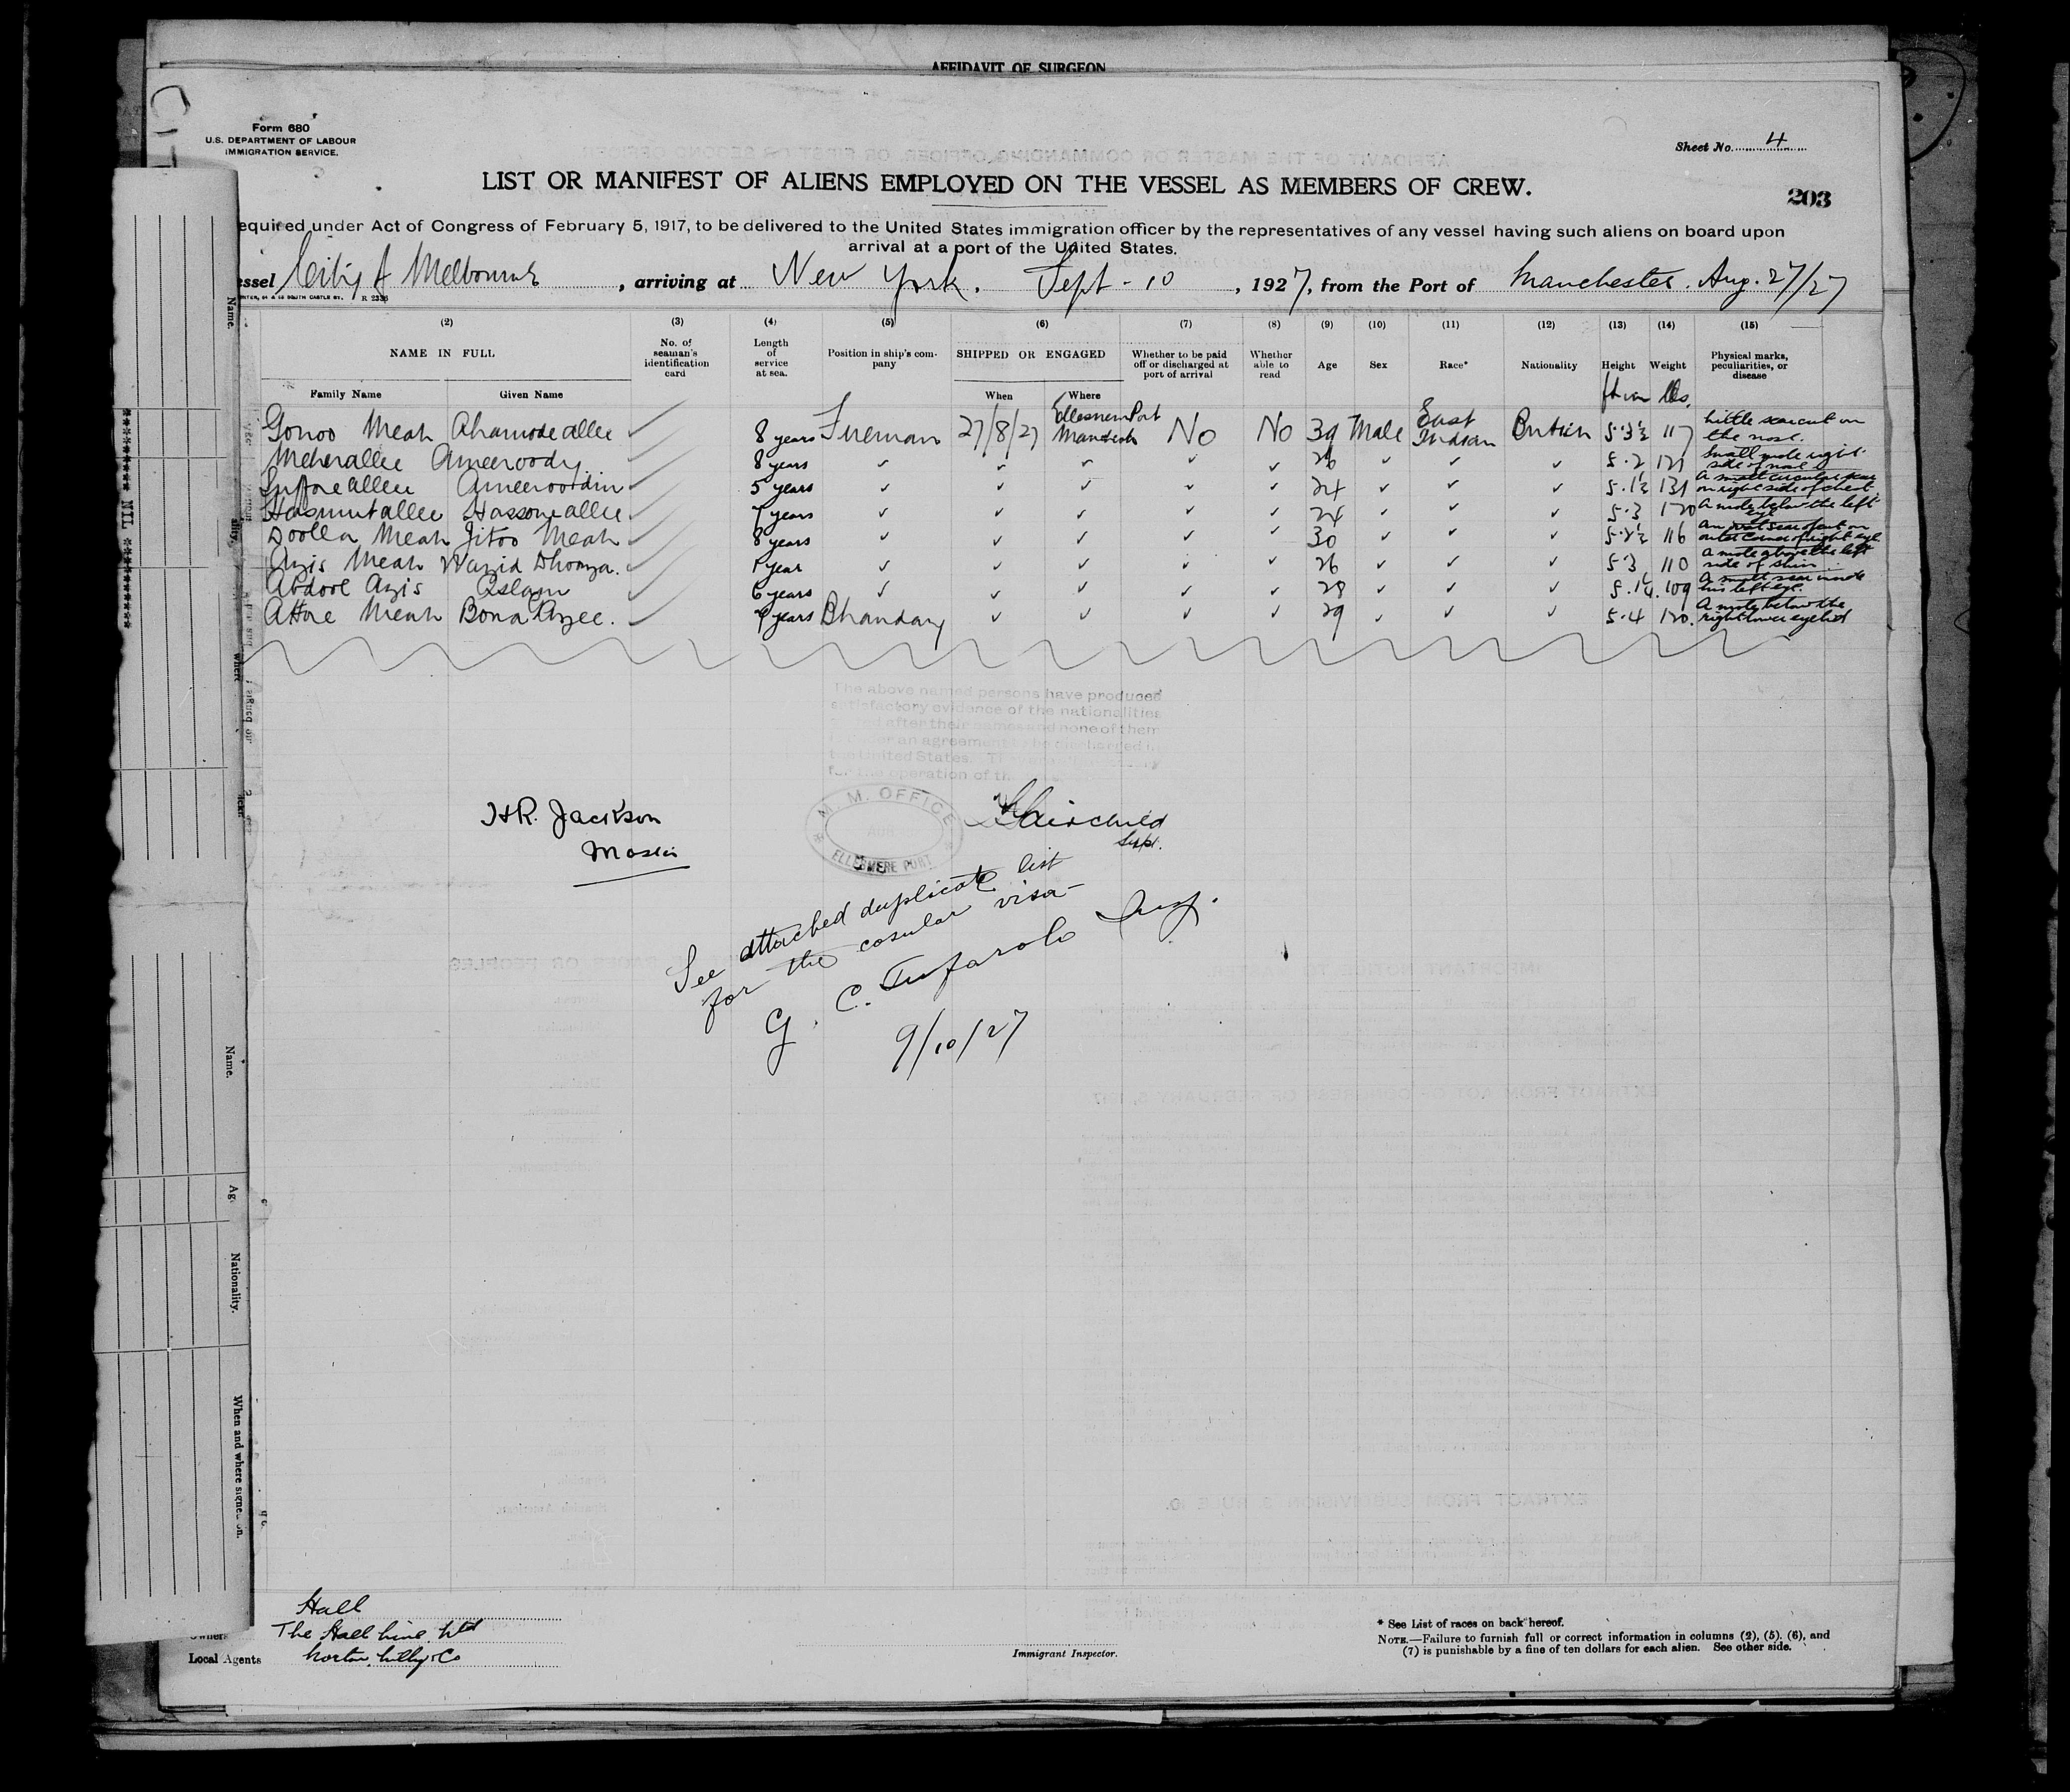 AFFIDAVIT OF SURGEON
Form 680
U.S. DEPARTMENT OF LABOUR
IMMIGRATION SERVICE.
Sheet No. 4
LIST OR MANIFEST OF ALIENS EMPLOYED ON THE VESSEL AS MEMBERS OF CREW.
203
equired under Act of Congress of February 5, 1917, to be delivered to the United States immigration officer by the representatives of any vessel having such aliens on board upon
arrival at a port of the United States.
essel City of Melbourne, arriving at New York. Sept - 10, 1927, from the Port of Manchester. Aug. 27/27
R 2336
(2) (3) (4) (5) (6) (7) (8) (9) (10) (11) (12) (13) (14) (15)
NAME IN FULL
No. of seaman's identification card
Length of service at sea.
Position in ship's company
SHIPPED OR ENGAGED
Whether to be paid off or discharged at port of arrival
Whether able to read
Age
Sex
Race*
Nationality
Height
Weight
Physical marks, peculiarities, or disease
Family Name Given Name When Where ft in lbs.
Gonoo Meah Ahamode allee ✓ 8 years Fireman 27/8/27 Ellesmere Port Manchester No No 39 Male East Indian British 5·3½ 117 Little scar cut on the nose.
Meherallee Ameeroody 8 years ✓ ✓ ✓ ✓ ✓ 26 ✓ ✓ ✓ 5·2 121 Small mole right side of nose
allee Ameerooddin ✓ 5 years ✓ ✓ ✓ ✓ ✓ 24 ✓ ✓ ✓ 5·1½ 131 A small circular scar on right side of chest
Hasmutallee Hassomeallee ✓ 7 years ✓ ✓ ✓ ✓ ✓ 24 ✓ ✓ ✓ 5·3 120 A mole below the left eye
Doolla Meah Jitoo Meah ✓ 8 years ✓ ✓ ✓ ✓ ✓ 30 ✓ ✓ ✓ 5·2½ 116 An scar of cut on outer corner of right eye
Azis Meah Wazid Dhonza. ✓ 1 year ✓ ✓ ✓ ✓ ✓ 26 ✓ ✓ ✓ 5·3 110 A mole above the left side of
Abdool Azis Islam ✓ 6 years ✓ ✓ ✓ ✓ ✓ 28 ✓ ✓ ✓ 109 A small scar inside his left eye.
Attore Meah Bona ✓ 9 years Bhandary ✓ ✓ ✓ ✓ 29 ✓ ✓ ✓ 5·4 120. A mole below the right lower eyelid
The above named persons have produced
satisfactory evidence of the nationalities
after their names and none of them
an agreement be discharged in
the United States.
for the operation of th
H.R. Jackson
Master
M. M. OFFICE
AUG
ELLESMERE PORT
Fairchild
Supt.
See attached duplicate list
for the cosular visa -
G. C. Tufarolo Insp.
9/10/27
Name.
NIL
Name.
Nationality.
When and where signed on.
Hall
Owners The Hall Line Ltd
Local Agents Norton Lilly & Co
Immigrant Inspector.
* See List of races on back hereof.
NOTE.—Failure to furnish full or correct information in columns (2), (5), (6), and
(7) is punishable by a fine of ten dollars for each alien. See other side.